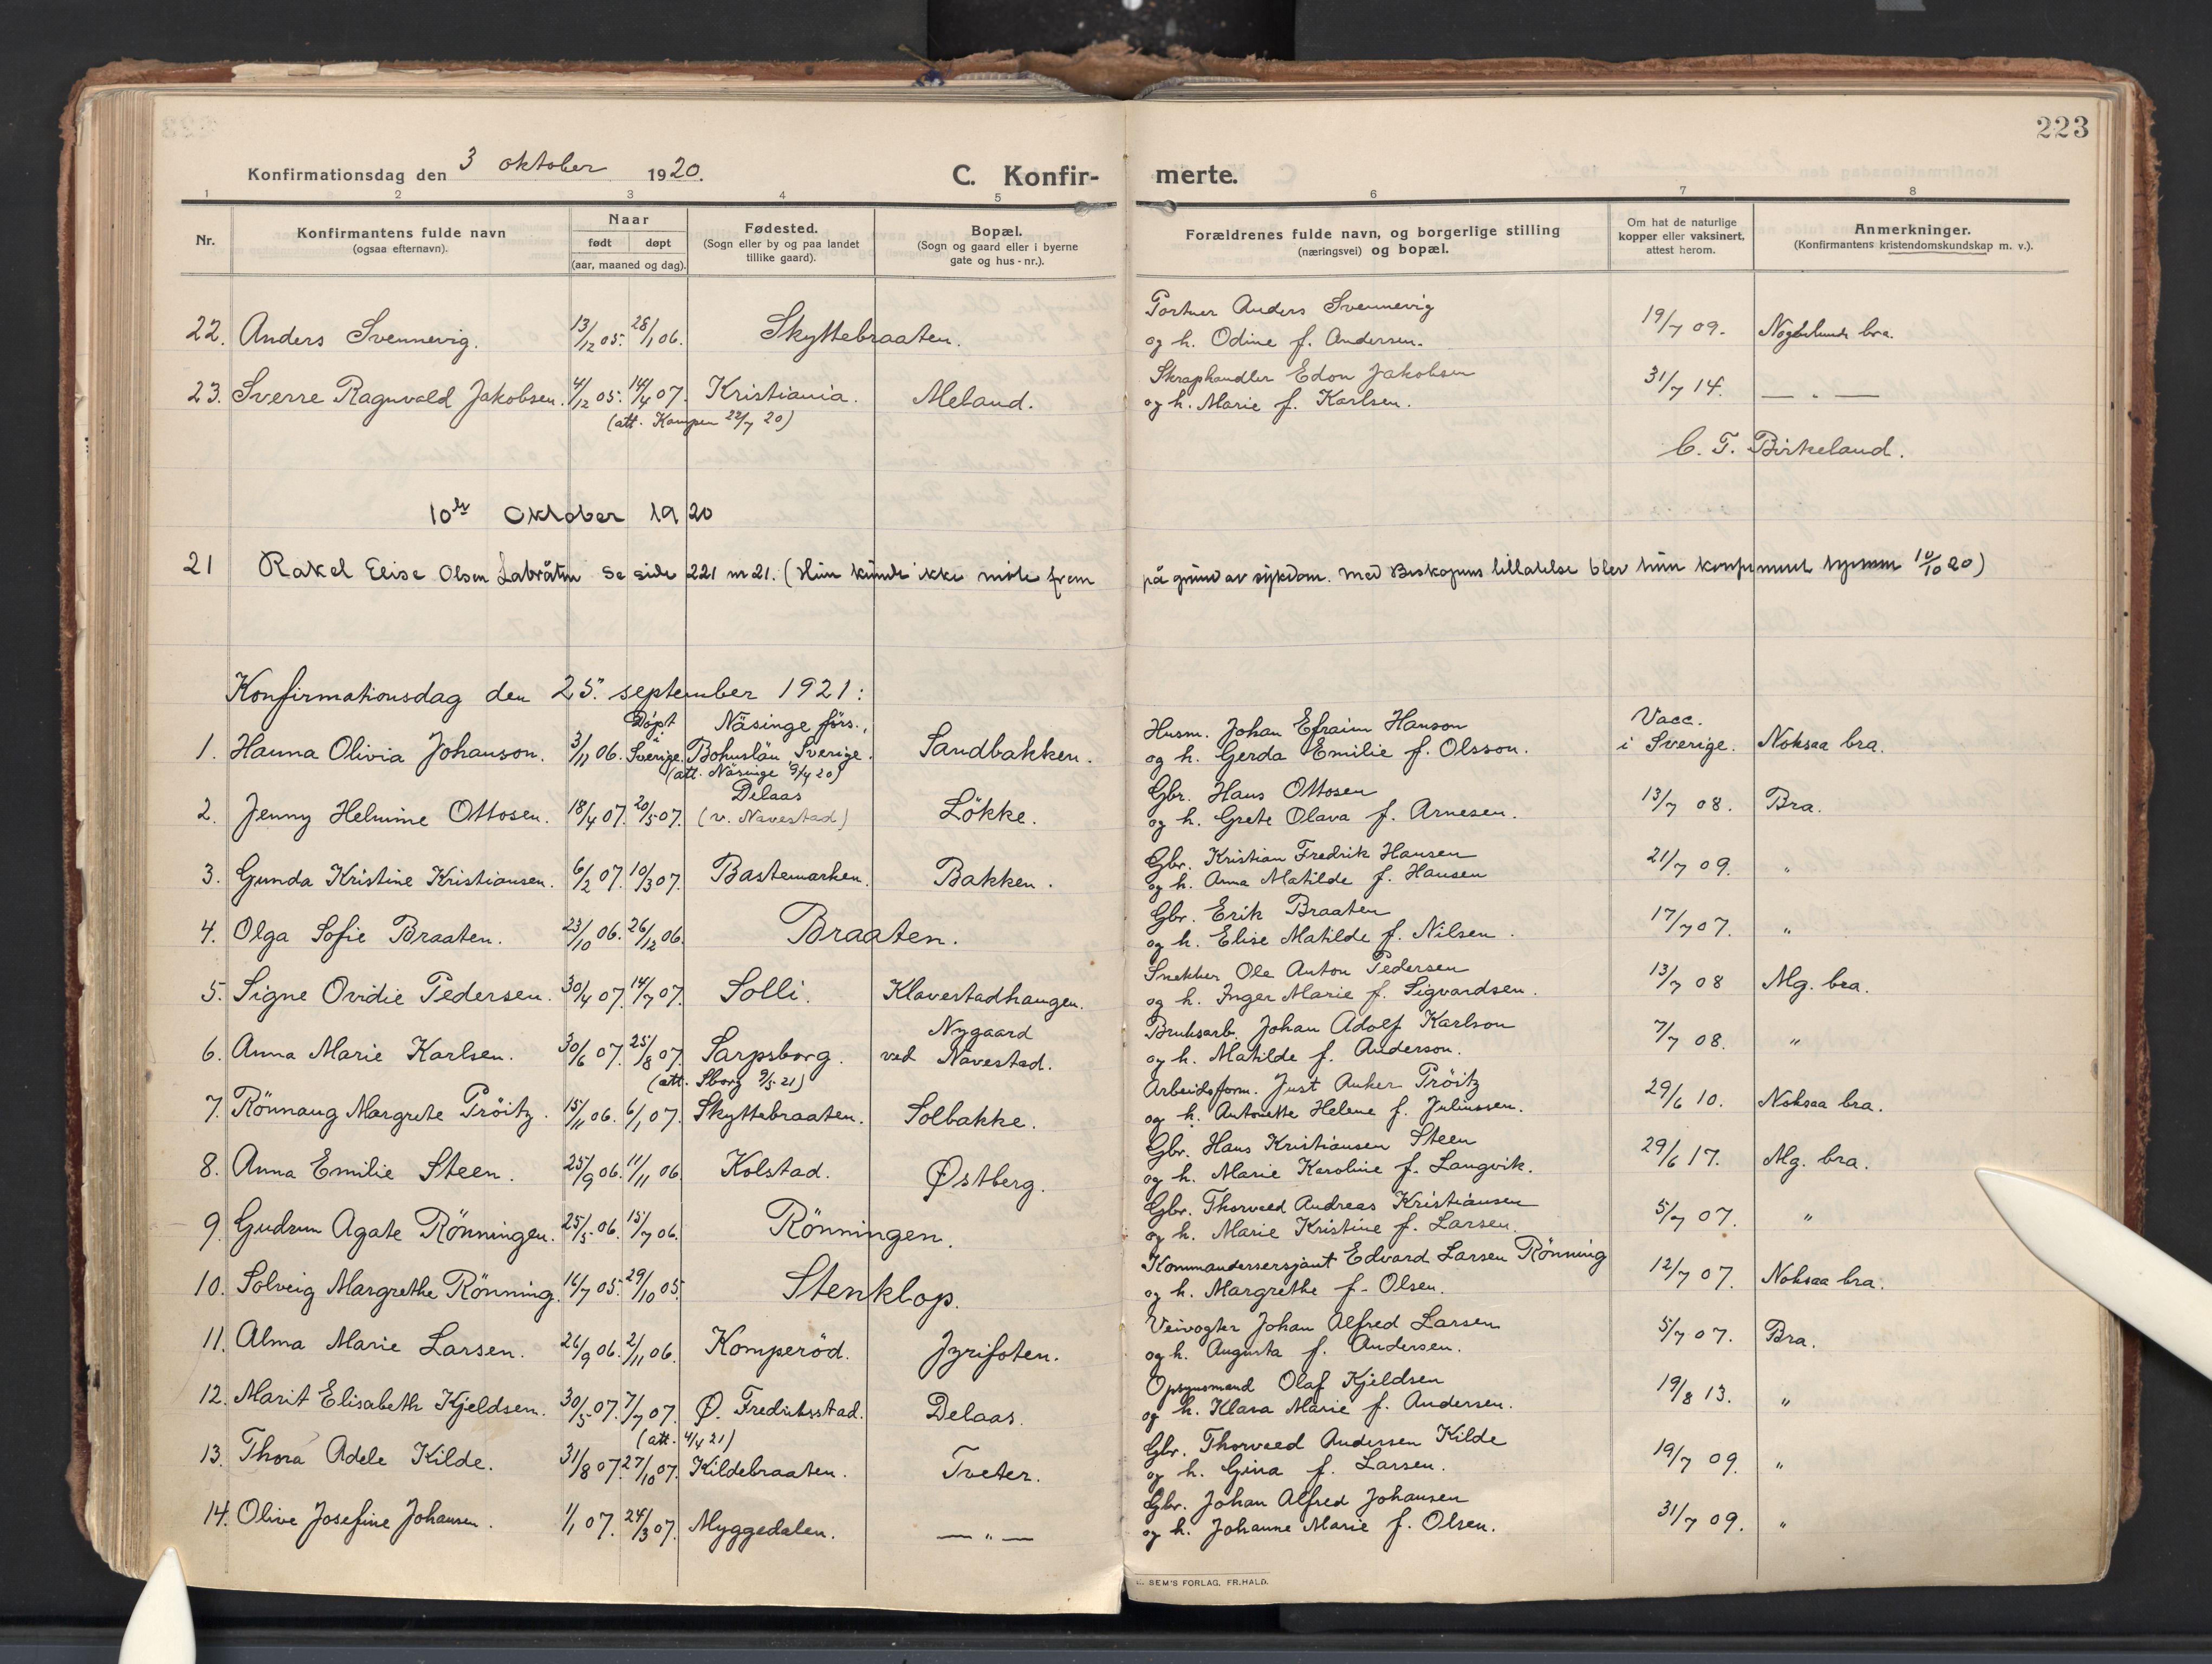 223
Konfirmationsdag den 3 oktober 1920. C. Konfirmerte.
1 2 3 4 5 6 7 8
Nr. Konfirmantens fulde navn (ogsaa efternavn). Naar født døpt (aar, maaned og dag). Fødested. (Sogn eller by og paa landet tillike gaard). Bopæl. (Sogn og gaard eller i byerne gate og hus-nr.). Forældrenes fulde navn, og borgerlige stilling (næringsvei) og bopæl. Om hat de naturlige kopper eller vaksinert, attest herom. Anmerkninger. (Konfirmantens kristendomskundskap m. v.).
22. Anders Svennevig. 13/12 05. 28/1 06. Skyttebraaten. Portner Anders Svennevig og h. Odine f. Andersen. 19/7 09. bra.
23. Sverre Ragnvald Jakobsen. 4/12 05. 14/4 07. Kristiania. (att. Kampen 22/7 20) Meland. Skraphandler Edon Jakobsen og h. Marie f. Karlsen. 31/7 14. — " —
C. T. Birkeland.
10de Oktober 1920
21 Rakel Elise Olsen Labråten se side 221 nr 21. (Hun kunde ikke møte frem på grund av sykdom. Med Biskopens tillatelse blev hun konfirmert 10/10 20)
Konfirmationsdag den 25. september 1921:
1. Hanna Olivia Johanson. 3/11 06. Döpt i Sverige. Näsinge förs., Bohuslän Sverige. (att. Näsinge 9/4 20) Sandbakken. Husm. Johan Efraim Hanson og h. Gerda Emilie f. Olsson. Vacc. i Sverige. Noksaa bra.
2. Jenny Helmine Ottosen. 18/4 07. 20/5 07. Delaas (v. Navestad) Lökke. Gbr. Hans Ottosen og h. Grete Olava f. Arnesen. 13/7 08. Bra.
3. Gunda Kristine Kristiansen. 6/2 07. 10/3 07. Bastemarken. Bakken. Gbr. Kristian Fredrik Hansen og h. Anna Matilde f. Hansen 21/7 09. "
4. Olga Sofie Braaten. 23/10 06. 26/12 06. Braaten. Gbr. Erik Braaten og h. Elise Matilde f. Nilsen. 17/7 07. "
5. Signe Ovidie Pedersen. 30/4 07. 14/7 07. Solli. Klavestadhaugen. Snekker Ole Anton Pedersen og h. Inger Marie f. Sigvardsen. 13/7 08 Mg. bra.
6. Anna Marie Karlsen. 30/6 07. 25/8 07. Sarpsborg. (att. Sborg 9/5 21) Nygaard ved Navestad. Bruksarb. Johan Adolf Karlson og h. Matilde f. Anderson. 7/7 08. "
7. Rönnaug Margrete Pröitz. 15/11 06. 6/1 07. Skyttebraaten. Solbakke. Arbeidsform. Just Anker Pröitz og h. Antonette Helene f. Juliussen. 29/6 10. Noksaa bra.
8. Anna Emilie Steen. 25/9 06. 11/11 06 Kolstad. Østberg. Gbr. Hans Kristiansen Steen og h. Marie Karoline f. Langvik. 29/6 17. Mg. bra.
9. Gudrun Agate Rönningen. 25/5 06. 15/7 06. Rönningen. Gbr. Thorvald Andreas Kristiansen og h. Marie Kristine f. Larsen. 5/7 07. "
10. Solveig Margrethe Rönning. 16/7 05. 29/10 05. Stenklop. Kommandersersjant Edvard Larsen Rönning og h. Margrethe f. Olsen. 12/7 07. Noksaa bra.
11. Alma Marie Larsen. 26/9 06. 2/11 06. Komperöd. Jyrifoten. Veivogter Johan Alfred Larsen og h. Augusta f. Andersen. 5/7 07. Bra.
12. Marit Elisabeth Kjeldsen. 30/5 07. 7/7 07. Ø. Fredriksstad. (att. 4/4 21) Delaas. Opsynsmand Olaf Kjeldsen og h. Klara Marie f. Andersen. 19/8 13. "
13. Thora Adele Kilde. 31/8 07. 27/10 07. Kildebraaten. Tveter. Gbr. Thorvald Andersen Kilde og h. Gina f. Larsen. 19/7 09. "
14. Olive Josefine Johansen. 1/1 07. 24/3 07. Myggedalen. — " — Gbr. Johan Alfred Johansen og h. Johanne Marie f. Olsen. 31/7 09. "
SEM'S FORLAG, FR.HALD.